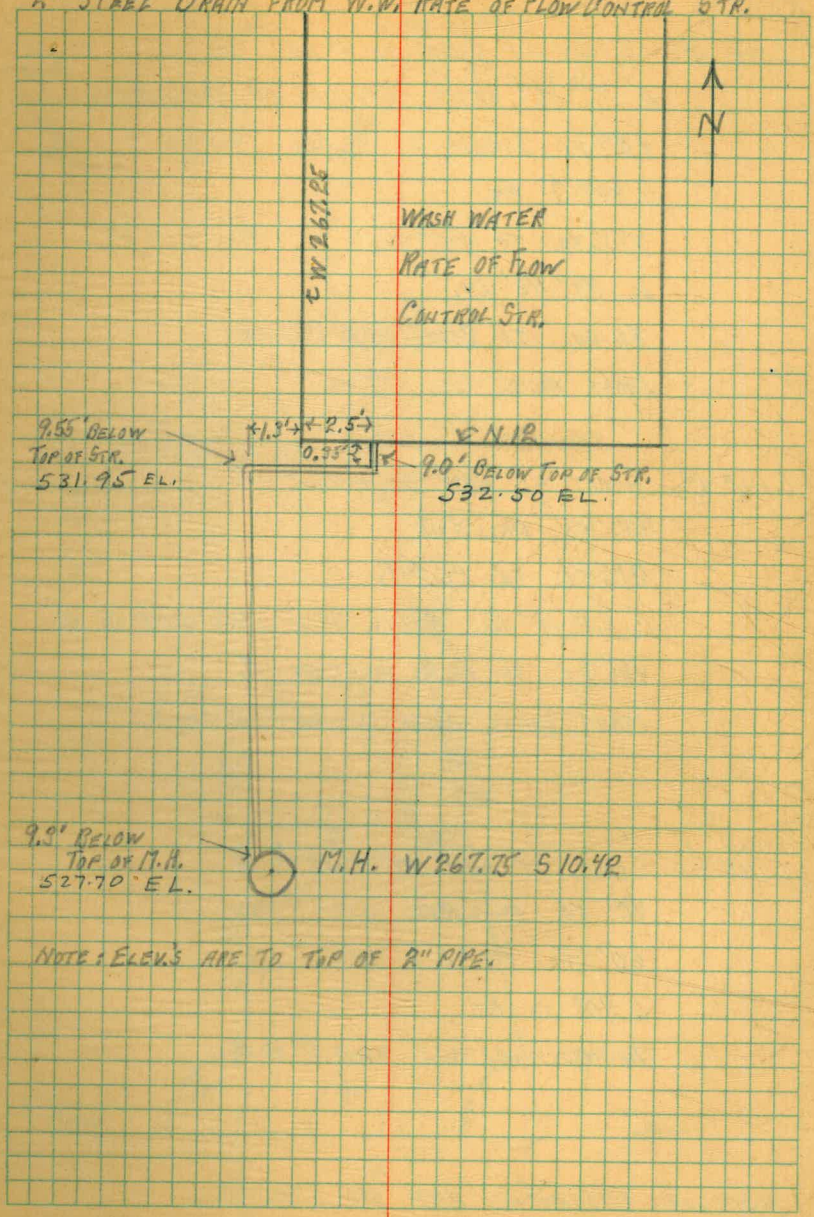 2" STEEL DRAIN FROM W.W. RATE OF FLOW CONTROL STR.
N
W 267.25
WASH WATER
RATE OF FLOW
CONTROL STR.
1.3' 2.5'
N 12
0.95'
9.55' BELOW
TOP OF STR.
531.95 EL.
9.0' BELOW TOP OF STR.
532.50 EL.
9.3' BELOW
TOP OF M.H.
527.70 EL.
M.H. W 267.75 S 10.42
NOTE: ELEV.'S ARE TO TOP OF 2" PIPE.